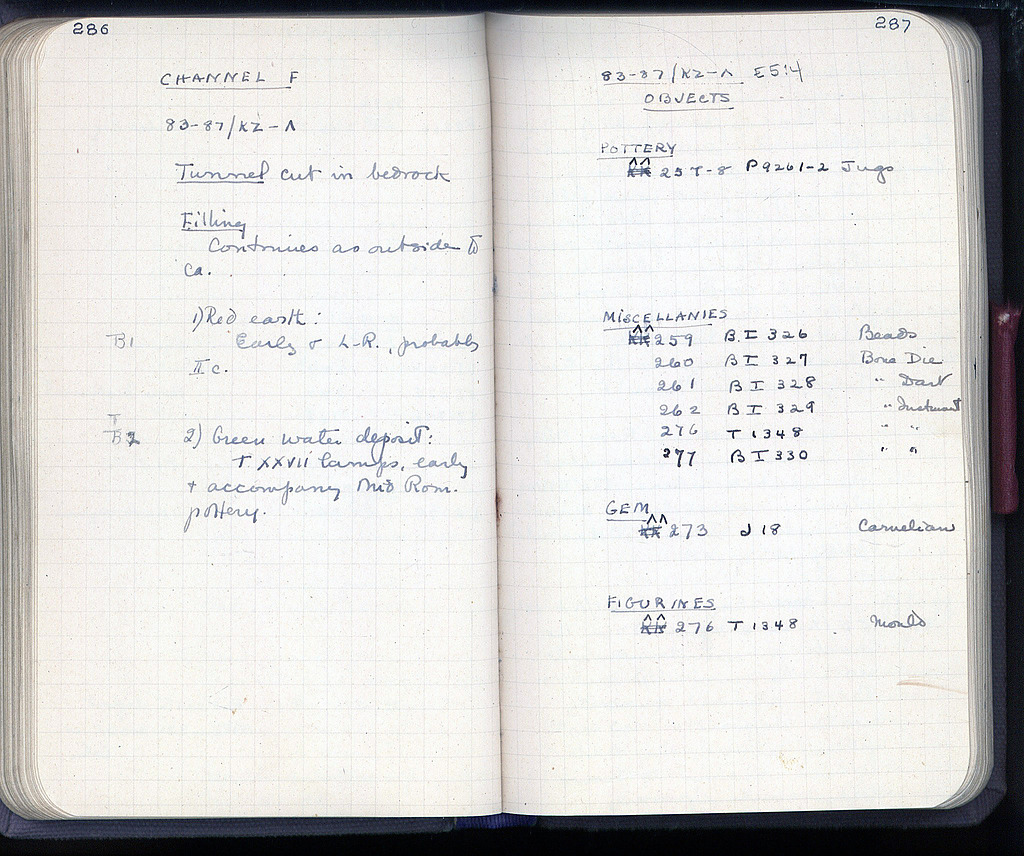 286
CHANNEL F
83-87/ΚΖ-Λ
Tunnel cut in bedrock
Filling
Continues as outside to
ca.
1) Red earth:
B1 Early & L-R., probably
II c.
B2 2) Green water deposit:
T XXVII lamps, early
+ accompany Mid Rom.
pottery.
287
83-87/ΚΖ-Λ E5:4
OBJECTS
POTTERY
ΛΛ 257-8 P9261-2 Jugs
MISCELLANIES
ΛΛ 259 BI 326 Beads
260 BI 327 Bone Die
261 BI 328 " Dart
262 BI 329 " Instrument
276 T 1348 " "
277 BI 330 " "
GEM
ΛΛ 273 J 18 Carnelian
FIGURINES
ΛΛ 276 T 1348 Mould